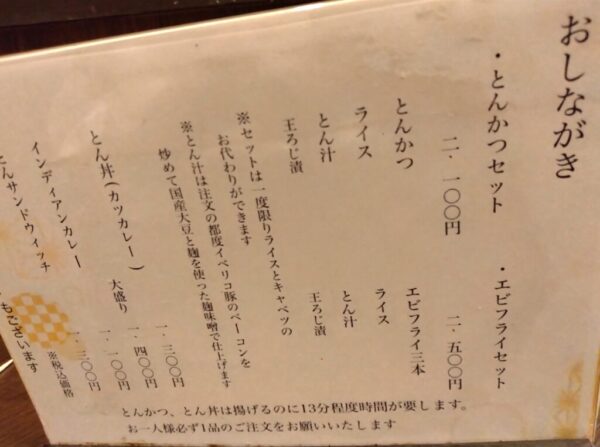 おしながき
・とんかつセット 二・一〇〇円
とんかつ
ライス
とん汁
王ろじ漬
・エビフライセット 二・五〇〇円
エビフライ三本
ライス
とん汁
王ろじ漬
※セットは一度限りライスとキャベツの
お代わりができます
※とん汁は注文の都度イベリコ豚のベーコンを
炒めて国産大豆と麹を使った麹味噌で仕上げます
とん丼(カツカレー) 一・三〇〇円
大盛り 一・四〇〇円
インディアンカレー 一・一〇〇円
とんサンドウィッチ 一・三〇〇円
※税込価格
もございます
とんかつ、とん丼は揚げるのに13分程度時間が要します。
お一人様必ず1品のご注文をお願いいたします